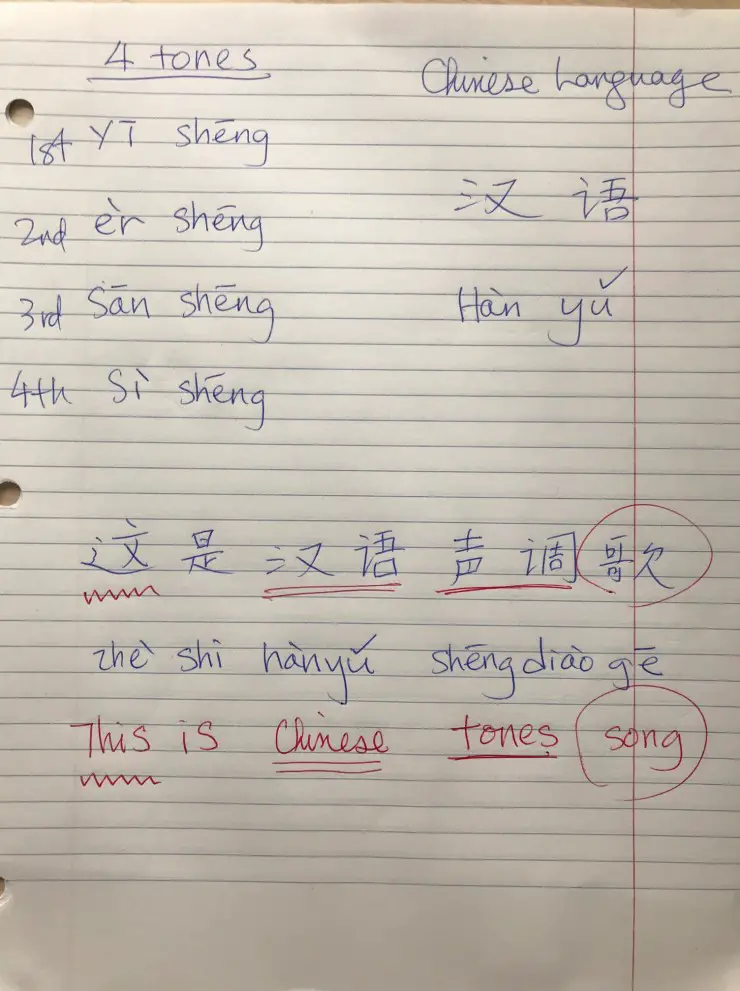 4 tones
Chinese Language
1st yī shēng
汉语
2nd èr shēng
3rd Sān shēng
Hàn yǔ
4th Sì shēng
这是汉语声调歌
zhè shì hànyǔ shēngdiào gē
This is Chinese tones song